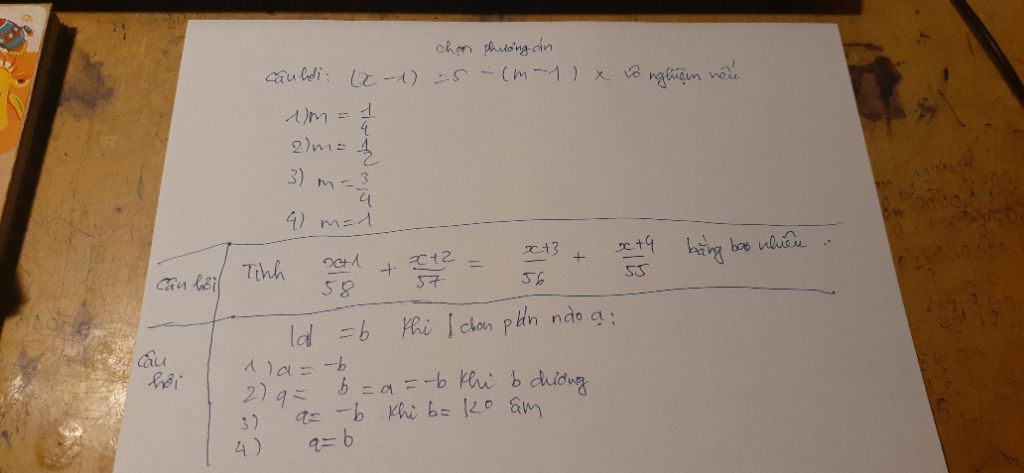 chọn phương án
Câu hỏi: (x-1) = 5 - (m-1) x vô nghiệm nếu
1) m = 1/4
2) m = 1/2
3) m = 3/4
4) m = 1
Câu hỏi Tính x+1/58 + x+2/57 = x+3/56 + x+4/55 bằng bao nhiêu
Câu hỏi |a| = b khi chọn p/án nào ạ:
1) a = -b
2) a = b = a = -b khi b dương
3) a = -b khi b = ko âm
4) a = b